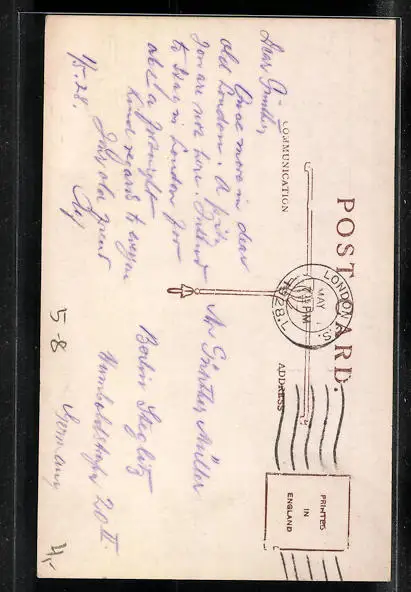 POST CARD.
COMMUNICATION
ADDRESS
PRINTED
IN
ENGLAND
LONDON
MAY
PM
1928
Dear Günther,
Once more in dear
old London. A pity
you are not here. Intend
to stay in London for
about a fortnight
Kind regards to everyone
Your old friend
1/5.28.
Mr Günther Müller
Berlin Steglitz
Humboldtstrasse 20 II
Germany
5-8
4,-